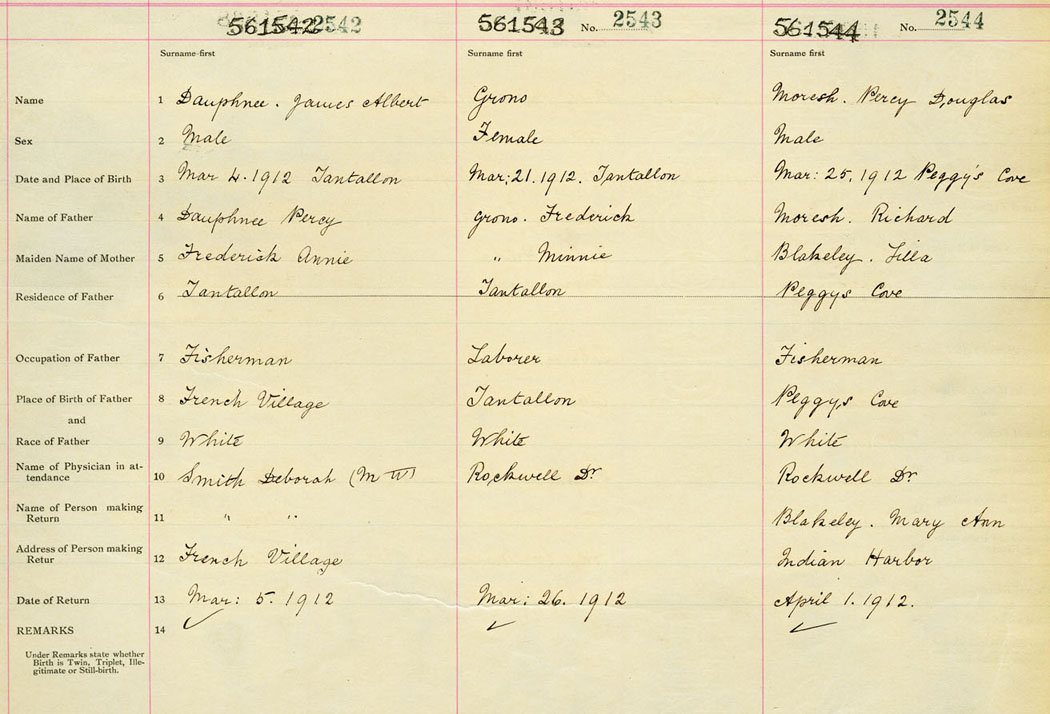 561542 2542 561543 No. 2543 561544 No. 2544
Surname first Surname first Surname first
Name 1 Dauphnee. James Albert Grono Moresh. Percy Douglas
Sex 2 Male Female Male
Date and Place of Birth 3 Mar 4. 1912 Tantallon Mar; 21. 1912. Tantallon Mar: 25, 1912 Peggy's Cove
Name of Father 4 Dauphnee Percy Grono. Frederick Moresh. Richard
Maiden Name of Mother 5 Frederick Annie " Minnie Blakeley. Lilla
Residence of Father 6 Tantallon Tantallon Peggys Cove
Occupation of Father 7 Fisherman Laborer Fisherman
Place of Birth of Father 8 French Village Tantallon Peggys Cove
and
Race of Father 9 White White White
Name of Physician in at-
tendance 10 Smith Deborah (M W) Rockwell Dr Rockwell Dr
Name of Person making
Return 11 " " Blakeley. Mary Ann
Address of Person making
Retur 12 French Village Indian Harbor
Date of Return 13 Mar: 5. 1912 Mar; 26. 1912 April 1. 1912.
REMARKS 14 ✓ ✓ ✓
Under Remarks state whether
Birth is Twin, Triplet, Ille-
gitimate or Still-birth.